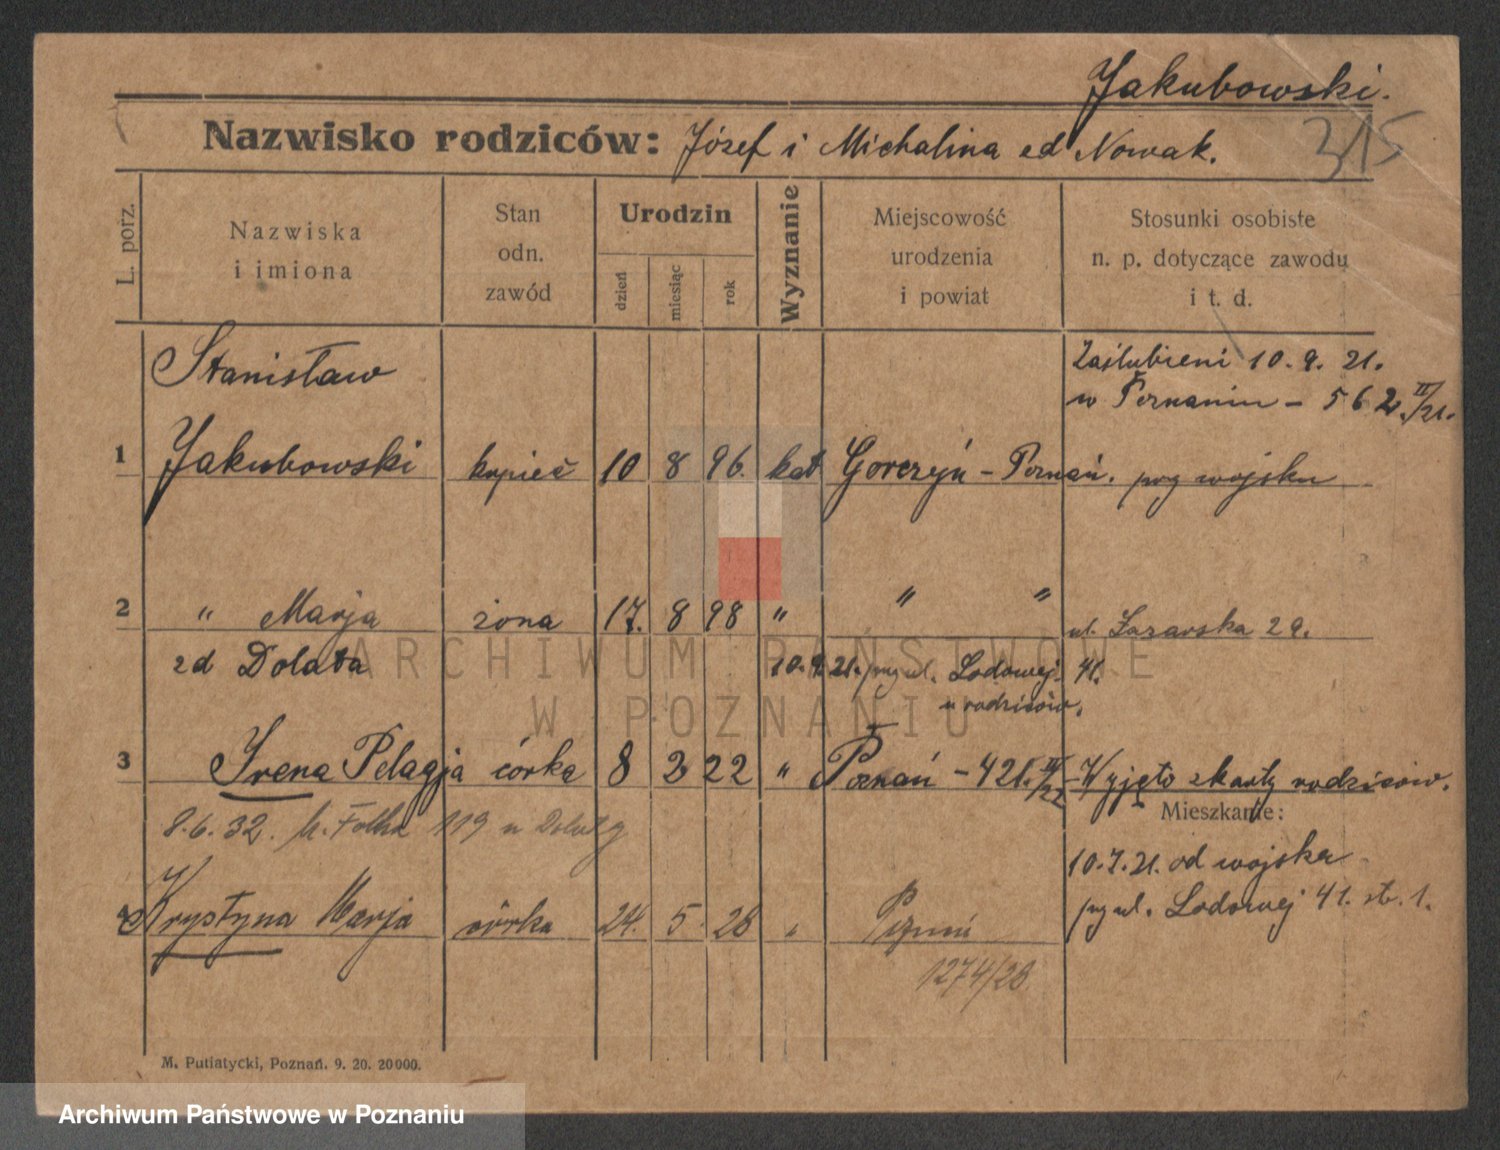 Jakubowski.
315
Nazwisko rodziców: Józef i Michalina od Nowak.
L. porz.
Nazwiska
i imiona
Stan
odn.
zawód
Urodzin
dzień
miesiąc
rok
Wyznanie
Miejscowość
urodzenia
i powiat
Stosunki osobiste
n. p. dotyczące zawodu
i t. d.
Stanisław
Zaślubieni 10. 9. 21.
w Poznaniu - 562. II/21.
1 Jakubowski kupiec 10 8 96. kat Gorczyń - Poznań. przy wojsku
2 " Marja żona 17. 8 98 " " " ul. Łazarska 29.
zd Dolata 10. 9. 21. przy ul. Lodowej 41.
u rodziców.
3 Irena Pelagja córka 8 2 22 " Poznań - 421. IV/22 Wyjęto z karty rodziców.
Mieszkanie:
8. 6. 32. 119 u
10. 7. 21. od wojska
przy ul. Lodowej 41. str. 1.
4 Krystyna Marja córka 24. 5. 28 " Poznań
1274/28.
M. Putiatycki, Poznań. 9. 20. 20000.
ARCHIWUM PAŃSTWOWE
W POZNANIU
Archiwum Państwowe w Poznaniu